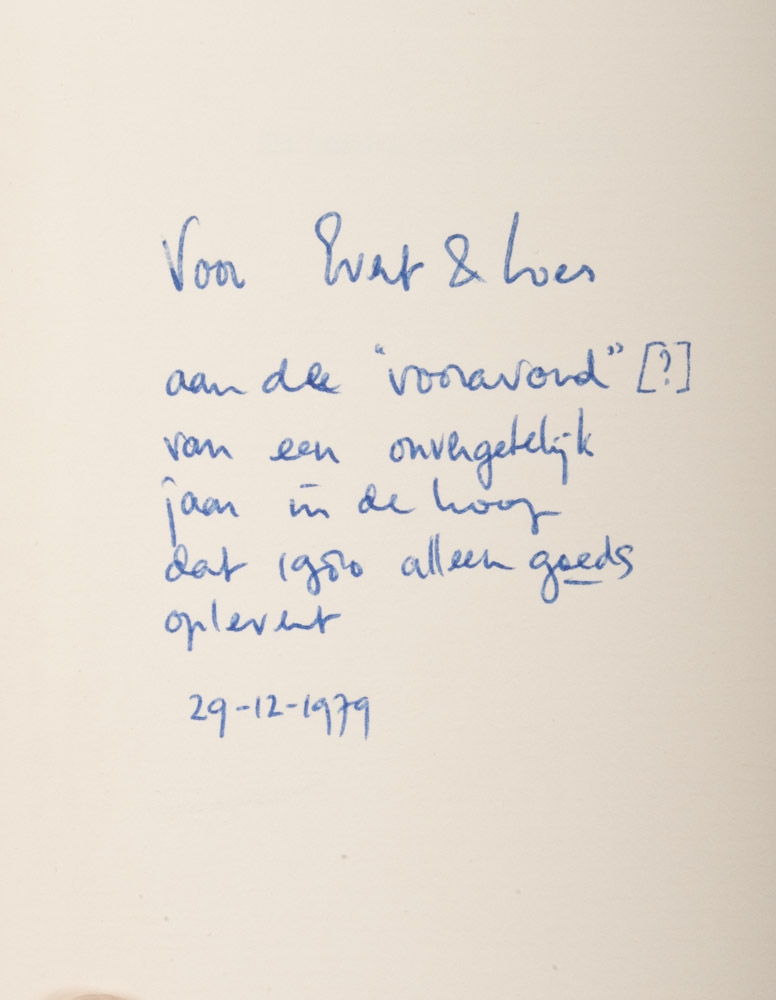 Voor Evert & Loes
aan de "vooravond" [?]
van een onvergetelijk
jaar in de hoop
dat 1980 alleen goeds
oplevert
29-12-1979